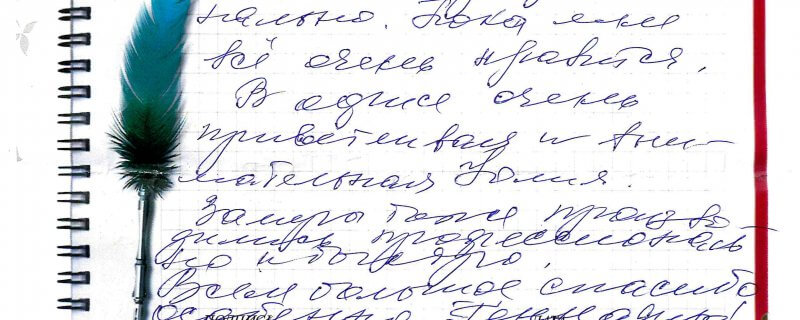 нально. Пока мне
всё очень нравится.
В офисе очень
приветливая и вни-
мательная Юлия.
Замеры тоже произво
дились профессиональ
но и быстро.
Всем большое спасибо
особенно